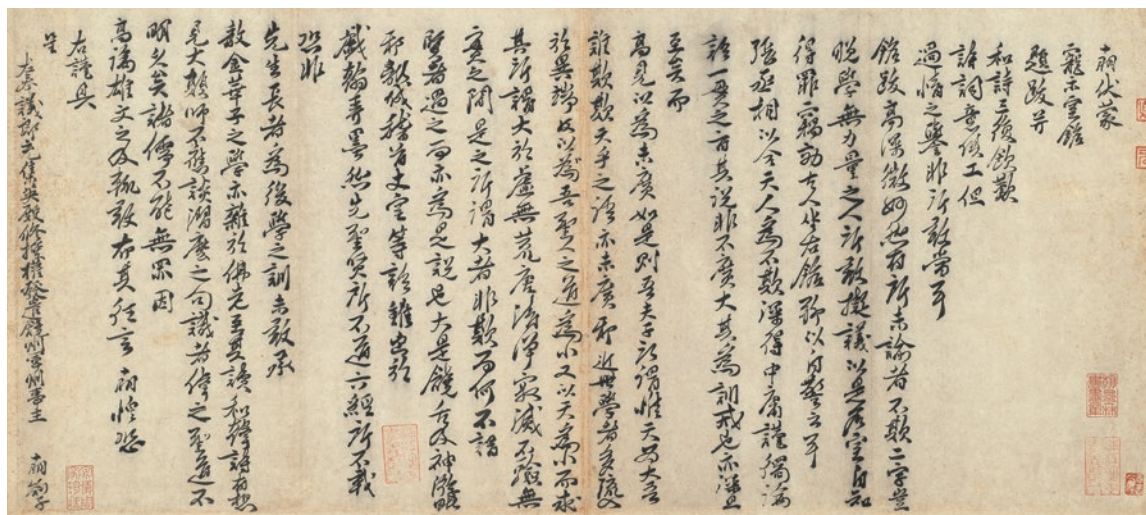 十朋伏蒙
寵示室銘
題跋并
和詩三復欽歎
詞意俊工但
過情之譽非所敢當耳
銘跋高深微妙然有所未諭者不欺二字豈
晚學無力量之人所敢擬議以是名室自知
得罪竊効古人坐右銘聊以自警云耳
張丞相以全天人為不欺深得中庸謹獨論
語一貫之旨其說非不廣大其為訓戒也亦深且
至矣而
高見以為未廣如是則吾夫子所謂惟天為大吾
誰欺欺天乎之語亦未廣邪近世學者多流入
於異端反以為吾聖人之道為小又以天為小而求
其所謂大於虛無荒唐清淨寂滅無
實之間是之所謂大者非欺而何不謂
賢者過之而亦為是說也大是饒舌及神
邪等語雖出於
戲翰弄墨然先聖賢所不道六經所不載
恐非
先生長者為後學之訓未敢承
教金華子之學亦雜於佛老至其讀和韓詩有想
見大顛師不談之句識者之聖道不
明久矣諸儒不能無罪因
高論雄文之及輒敢布其狂言十朋惶恐
右謹具
呈
左奉議郎充集英殿修撰權發遣饒州軍州事王十朋劄子